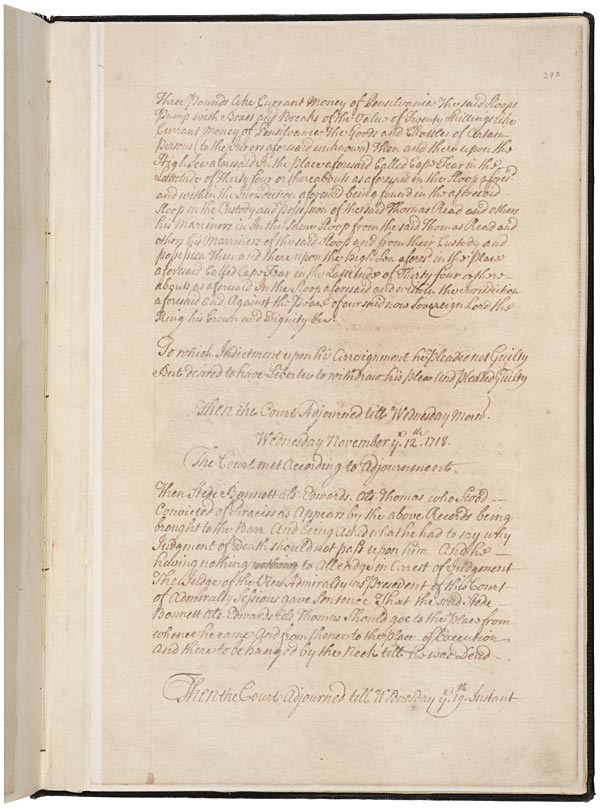 290
Three Pounds like Currant Money of Pensilvania The said Sloops
Pump with Boxes and Breaks of the Value of Twenty Shillings like
Currant Money of Pensilvania The Goods and Chattles of Certain
Persons (to the Jurors aforesaid unknown) Then and there upon the
High Sea aforesaid In the place aforesaid Called Cape Fear in the
Lattitude of Thirty four or thereabouts as aforesaid in the Sloop afores:d
and within the Jurisdiction aforesaid being found in the aforesaid
Sloop in the Custody and possession of the said Thomas Read and others
his Marriners in In the Same Sloop from the said Thomas Read and
others his Marriners of the said Sloop and from their Custody and
possession Then and there upon the high Sea afores:d in the place
aforesaid Called Cape Fear in the Lattitude of Thirty four or there-
abouts, as aforesaid In the Sloop aforesaid and within the Jurisdiction
aforesaid and Against the Peace of our said now Sovereign Lord the
King his Crown and Dignity &c:
To which Indictment upon his Arraignment he pleaded not Guilty
But desired to have Liberty to withdraw his plea and pleaded Guilty
Then the Court Adjourned till Wednesday Morn:
Wednesday November y:e 12:th 1718.
The Court met According to Adjournment.
Then Stede Bonnett als Edwards. als Thomas who Stood
Convicted of Piracies as Appears by the above Records being
brought to the Barr And being asked what he had to say why
Judgment of Death should not pass upon him And he
having nothing to Alledge in Arrest of Judgement
The Judge of the Vice Admiralty as President of this Court
of Admiralty Sessions gave Sentence That the said Stede
Bonnett als Edwards als Thomas Should go to the place from
whence he came And from thence to the place of Execution
And there to be hanged by the Neck till he was Dead
Then the Court Adjourned till Wednesday y:e 19:th Instant